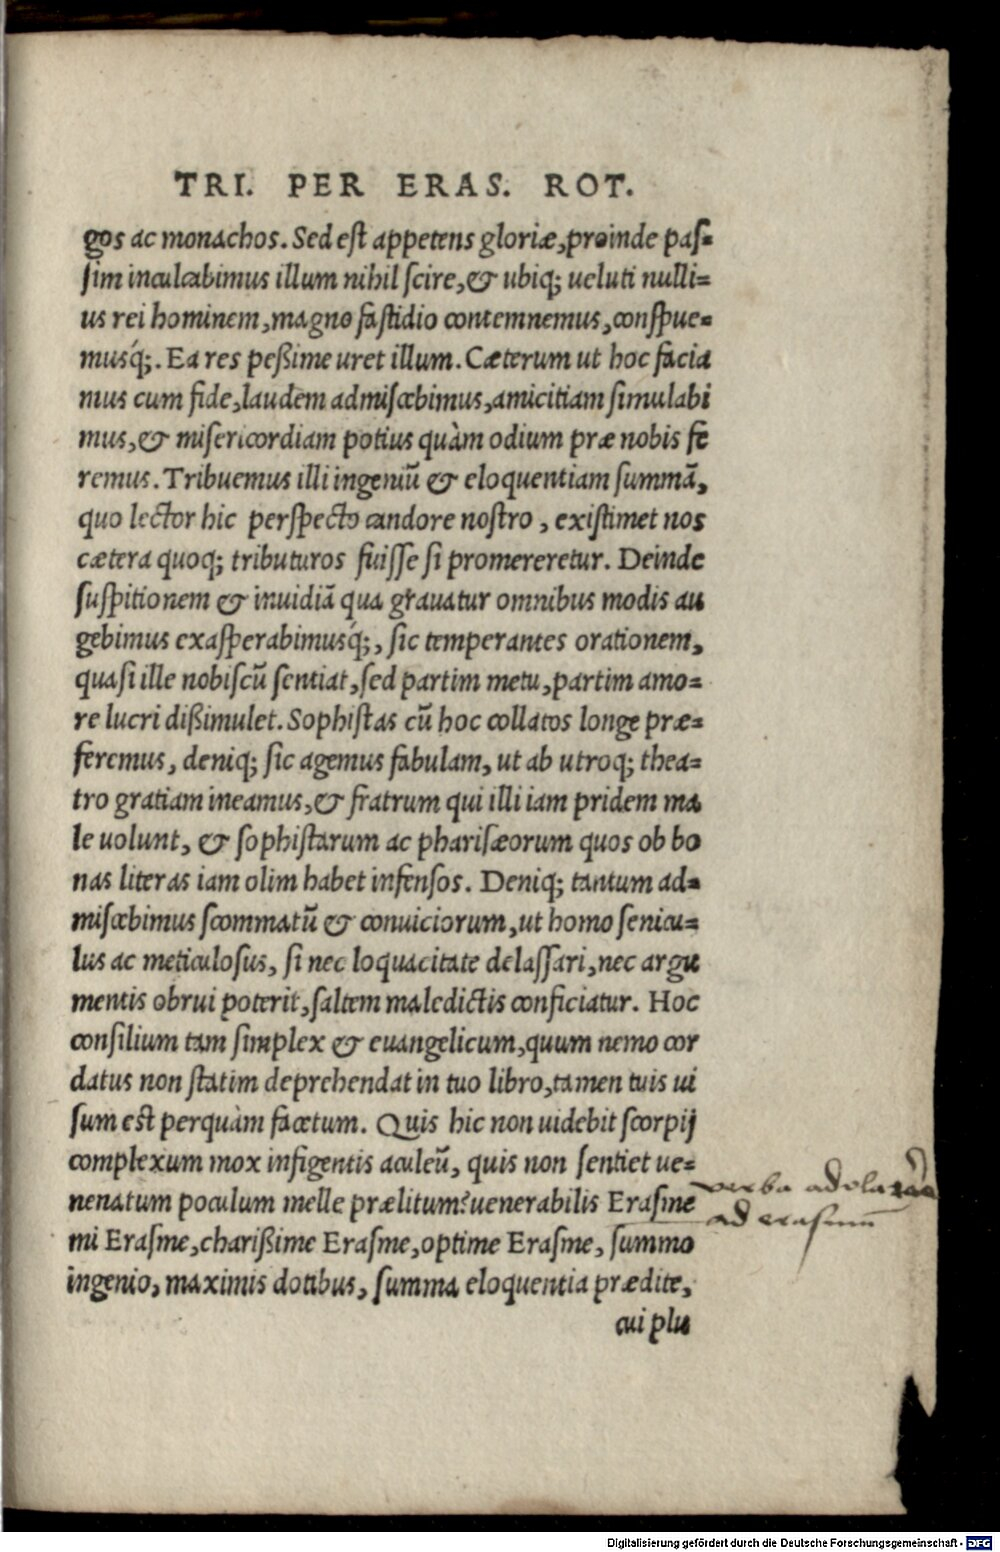 TRI. PER ERAS. ROT.
gos ac monachos. Sed est appetens gloriæ, proinde pas-
sim inculcabimus illum nihil scire, & ubiq; ueluti nulli-
us rei hominem, magno fastidio contemnemus, conspue-
musq́;. Ea res peßime uret illum. Cæterum ut hoc facia
mus cum fide, laudem admiscebimus, amicitiam simulabi
mus, & misericordiam potius quàm odium præ nobis fe
remus. Tribuemus illi ingeniū & eloquentiam summā,
quo lector hic perspecto candore nostro, existimet nos
cætera quoq; tributuros fuisse si promereretur. Deinde
suspitionem & inuidiā qua grauatur omnibus modis au
gebimus exasperabimusq́;, sic temperantes orationem,
quasi ille nobiscū sentiat, sed partim metu, partim amo-
re lucri dißimulet. Sophistas cū hoc collatos longe præ-
feremus, deniq; sic agemus fabulam, ut ab utroq; thea-
tro gratiam ineamus, & fratrum qui illi iam pridem ma
le uolunt, & sophistarum ac pharisæorum quos ob bo
nas literas iam olim habet infensos. Deniq; tantum ad-
miscebimus scommatū & conuiciorum, ut homo senicu-
lus ac meticulosus, si nec loquacitate delassari, nec argu
mentis obrui poterit, saltem maledictis conficiatur. Hoc
consilium tam simplex & euangelicum, quum nemo cor
datus non statim deprehendat in tuo libro, tamen tuis ui
sum est perquàm facetum. Quis hic non uidebit scorpij
complexum mox infigentis aculeū, quis non sentiet ue-
nenatum poculum melle prælitum? uenerabilis Erasme
mi Erasme, charißime Erasme, optime Erasme, summo
ingenio, maximis dotibus, summa eloquentia prædite,
cui plu
verba
ad erasmum
Digitalisierung gefördert durch die Deutsche Forschungsgemeinschaft - DFG